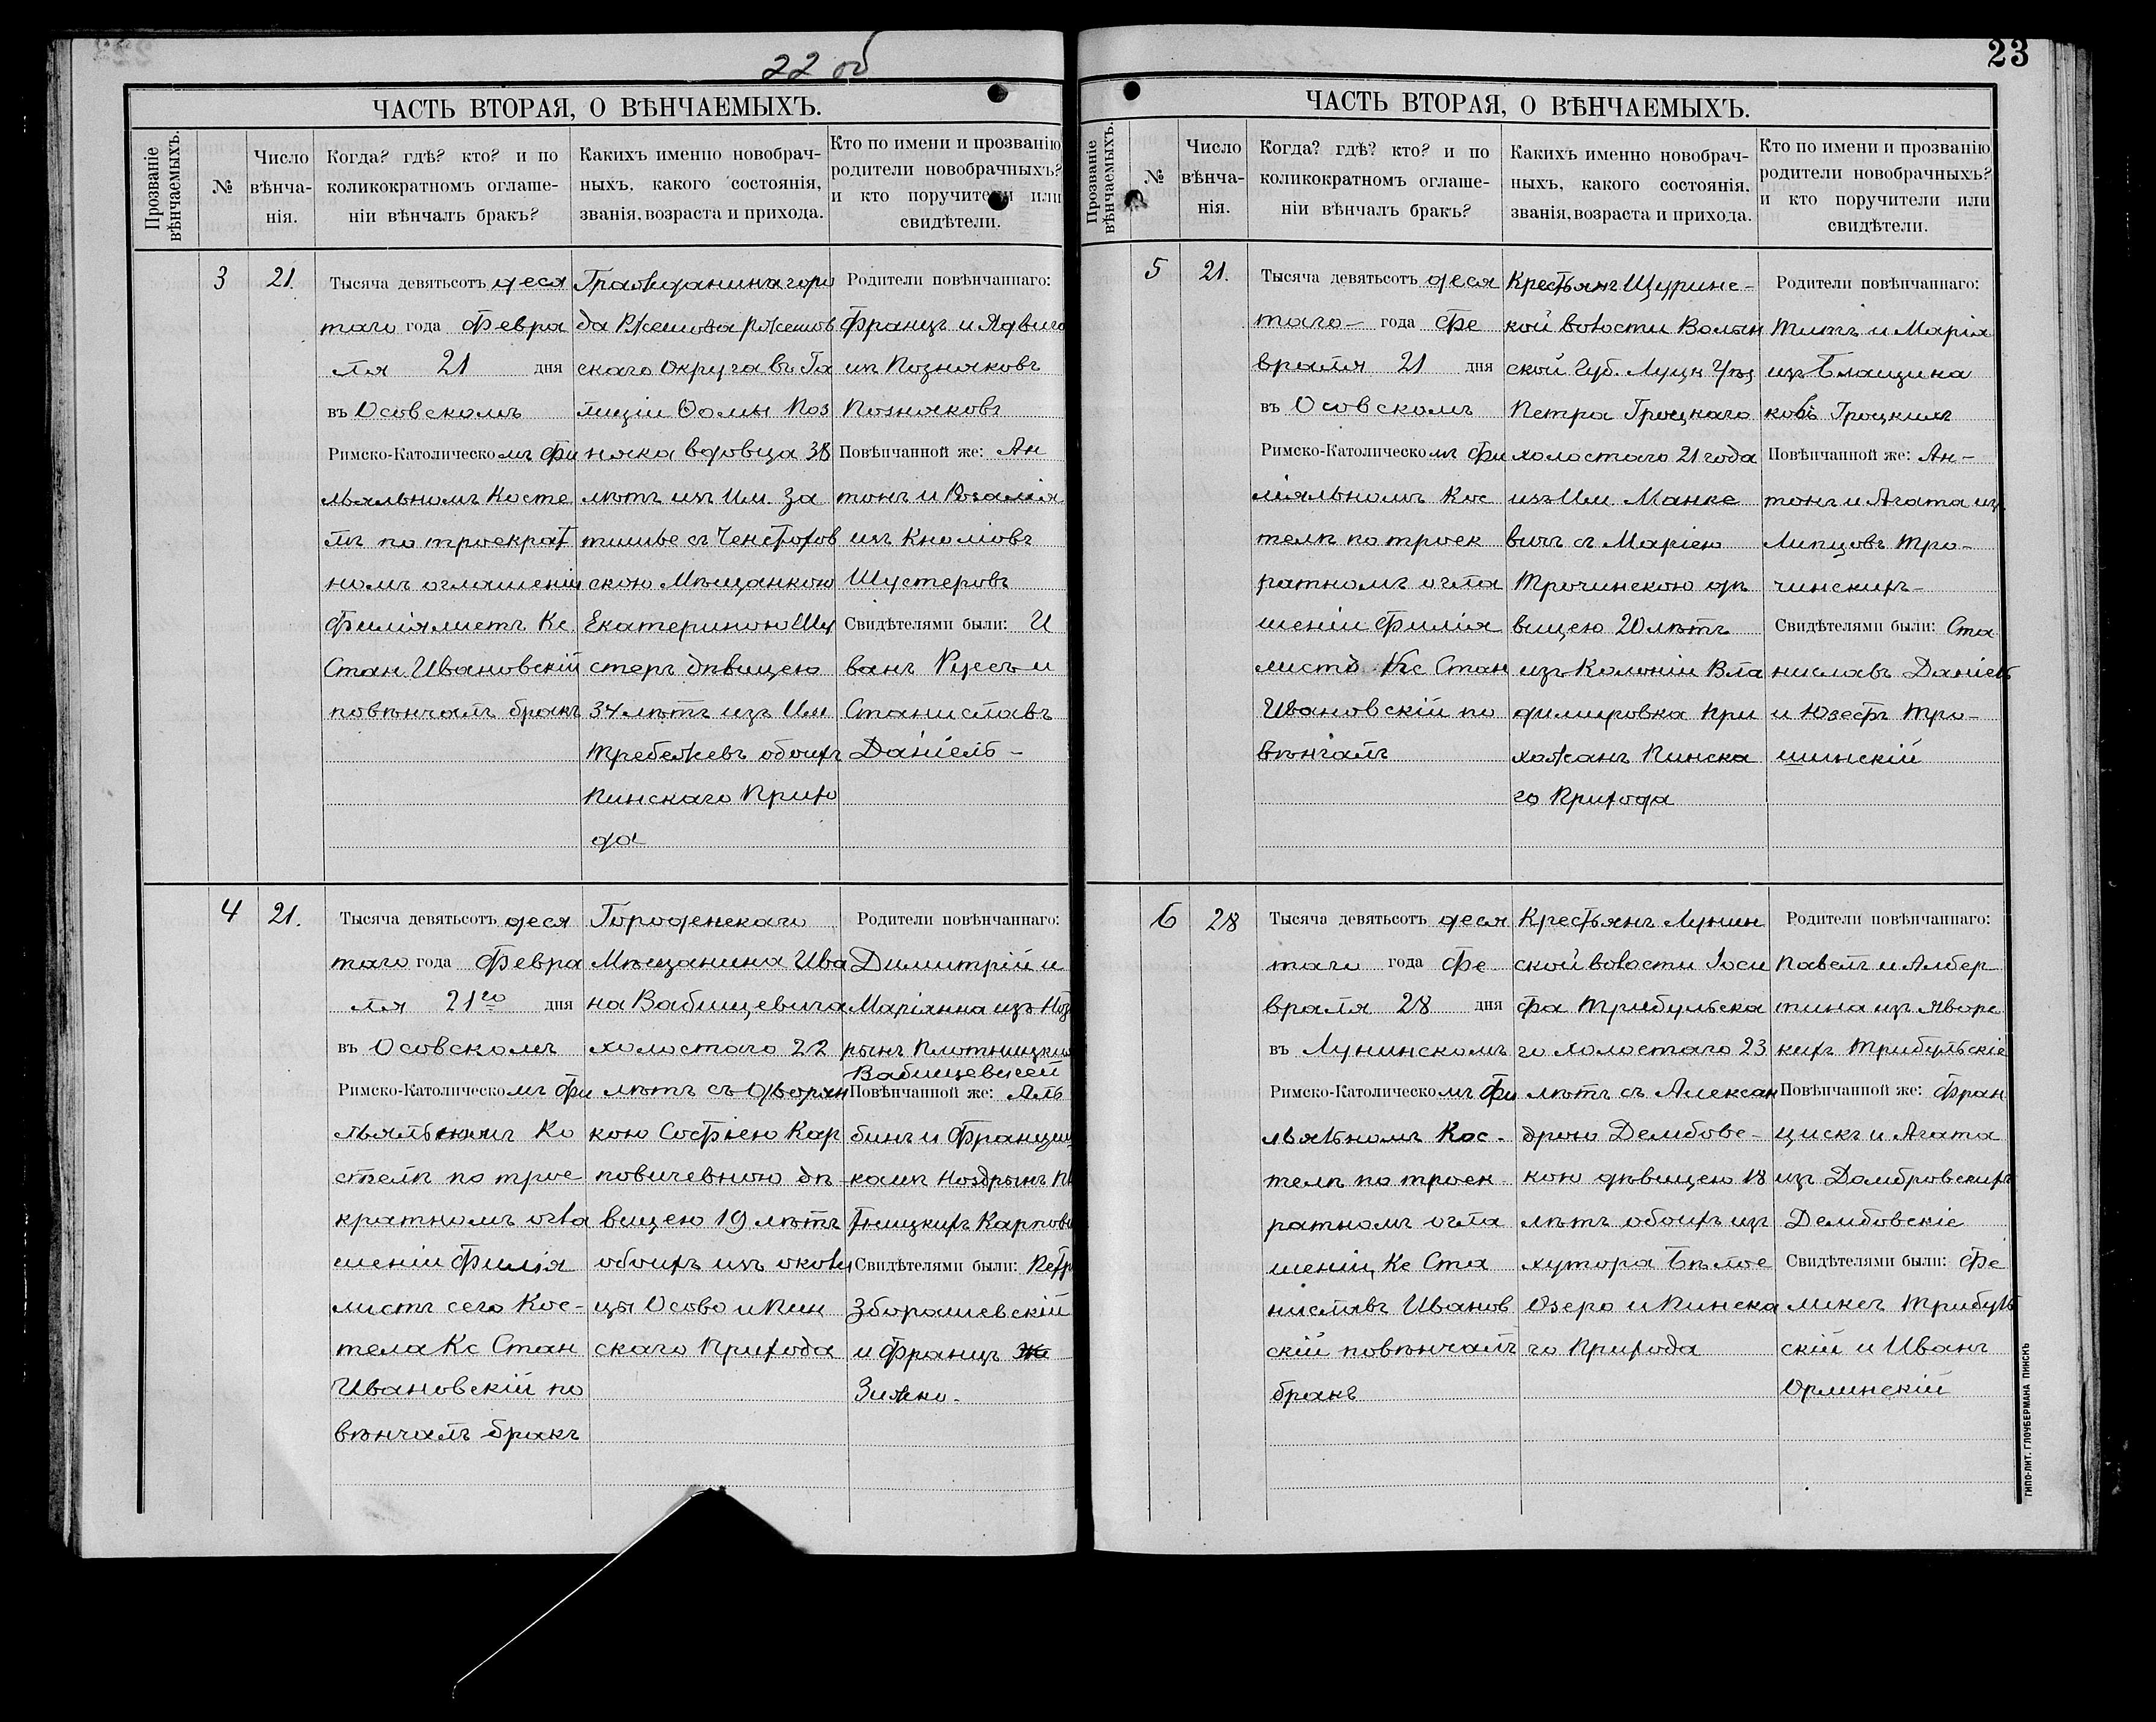 22 об
ЧАСТЬ ВТОРАЯ, О ВѢНЧАЕМЫХЪ.
Прозваніе вѣнчаемыхъ.
№
Число вѣнча-
нія.
Когда? гдѣ? кто? и по
коликократномъ оглаше-
ніи вѣнчалъ бракъ?
Какихъ именно новобрач-
ныхъ, какого состоянія,
званія, возраста и прихода.
Кто по имени и прозванію
родители новобрачныхъ?
и кто поручители или
свидѣтели.
3
21.
Тысяча девятьсотъ деся
таго года Февра
ля 21 дня
въ Осовскомъ
Римско-Католическомъ Фи
льяльномъ Косте
лѣ по троекрат
номъ оглашеніи
Филіялистъ Кс.
Стан. Ивановскій
повѣнчалъ бракъ
Гражданина горо
да Ржешова Ржешов
скаго Округа въ Га
лиціи Ѳомы Поз
няка вдовца 38
лѣтъ изъ Им. За
тишье съ Ченстохов
скою Мѣщанкою
Екатериною Шу
стеръ дѣвицею
34 лѣтъ изъ Им
Требежевъ обоихъ
Пинскаго Прихо
да
Родители повѣнчаннаго:
Францъ и Ядвига
изъ Позняковъ
Позняковъ
Повѣнчанной же: Ан
тонъ и Розалія
изъ Кномовъ
Шустеровъ
Свидѣтелями были: И
ванъ Русъ и
Станиславъ
Даніель -
4
21.
Тысяча девятьсотъ деся
таго года Февра
ля 21го дня
въ Осовскомъ
Римско-Католическомъ Фи
льяльномъ Ко
стелѣ по трое
кратномъ огла
шеніи Филія
листъ сего Кос-
тела Кс Стан
Ивановскій по
вѣнчалъ бракъ
Городенскаго
Мѣщанина Ива
на Вабищевича
холостаго 22
лѣтъ съ Дворян
кою Софьею Кар
повичевною дѣ-
вицею 19 лѣтъ
обоихъ изъ околи
цы Осово и Пин
скаго Прихода
Родители повѣнчаннаго:
Димитрій и
Маріянна изъ Ноз
рынъ Плотницких
Вабищевичей
Повѣнчанной же: Аль
бинъ и Францишка
изъ Ноздрынъ Пло
тницкихъ Карпови
Свидѣтелями были: Петръ
Зборашевскій
и Францъ
Зижко.
23
ЧАСТЬ ВТОРАЯ, О ВѢНЧАЕМЫХЪ.
Прозваніе вѣнчаемыхъ.
№
Число вѣнча-
нія.
Когда? гдѣ? кто? и по
коликократномъ оглаше-
ніи вѣнчалъ бракъ?
Какихъ именно новобрач-
ныхъ, какого состоянія,
званія, возраста и прихода.
Кто по имени и прозванію
родители новобрачныхъ?
и кто поручители или
свидѣтели.
5
21.
Тысяча девятьсотъ деся
таго - года Фе
враля 21 дня
въ Осовскомъ
Римско-Католическомъ Фи
ліяльномъ Кос
телѣ по троек
ратномъ огла
шеніи Филія
листъ Кс Стан
Ивановскій по
вѣнчалъ
Крестьянъ Щуринс-
кой волости Волын
ской Губ. Луцк Уѣз
Петра Гроцкаго
холостаго 21 года
изъ Им Манке
вичъ съ Маріею
Трочинскою дѣ
вицею 20 лѣтъ
изъ Колоніи Вла
димировка При
хожанъ Пинска
го Прихода
Родители повѣнчаннаго:
Титъ и Марія
изъ Блащина
ковъ Гроцкихъ
Повѣнчанной же: Ан-
тонъ и Агата изъ
Липцовъ Тро-
чинскихъ-
Свидѣтелями были: Ста
ниславъ Даніель
и Юзефъ Тро-
шинскій
6
28
Тысяча девятьсотъ деся
таго года Фе
враля 28 дня
въ Лунинскомъ
Римско-Католическомъ Фи
льяльномъ Кос.
телѣ по троек
ратномъ огла
шеніи, Кс Ста
ниславъ Иванов
скій повѣнчалъ
бракъ
Крестьянъ Лунин
ской волости Іоси
фа Трибульска
го холостаго 23
лѣтъ съ Алексан
дрою Дембовс-
кою дѣвицею 18
лѣтъ обоихъ изъ
хутора Бѣлое
Озеро и Пинска
го Прихода
Родители повѣнчаннаго:
Павелъ и Албер
тина изъ Яворс
кихъ Трибульскіе
Повѣнчанной же: Фран
цискъ и Агата
изъ Домбровскихъ
Дембовскіе
Свидѣтелями были: Фе
ликсъ Трибуль
скій и Иванъ
Орлинскій
ТИПО-ЛИТ. ГЛОУБЕРМАНА ПИНСКЪ